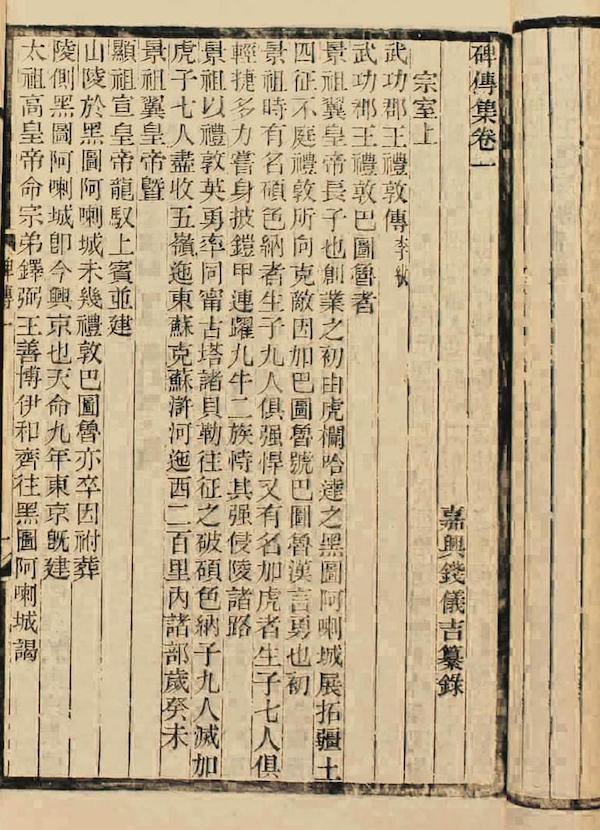 碑傳集卷一
嘉興錢儀吉纂錄
宗室上
武功郡王禮敦傳 李紱
武功郡王禮敦巴圖魯者
景祖翼皇帝長子也創業之初由虎欄哈達之黑圖阿喇城展拓疆土
四征不庭禮敦所向克敵因加巴圖魯號巴圖魯漢言勇也初
景祖時有名碩色納者生子九人俱强悍又有名加虎者生子七人俱
輕捷多力嘗身披鎧甲連躍九牛二族恃其强侵陵諸路
景祖以禮敦英勇率同甯古塔諸貝勒往征之破碩色納子九人滅加
虎子七人盡收五嶺迤東蘇克蘇滸河迤西二百里內諸部歲癸未
景祖翼皇帝曁
顯祖宣皇帝龍馭上賓並建
山陵於黑圖阿喇城未幾禮敦巴圖魯亦卒因祔葬
陵側黑圖阿喇城卽今興京也天命九年東京旣建
太祖高皇帝命宗弟鐸弼王善博伊和齊往黑圖阿喇城謁
碑傳一